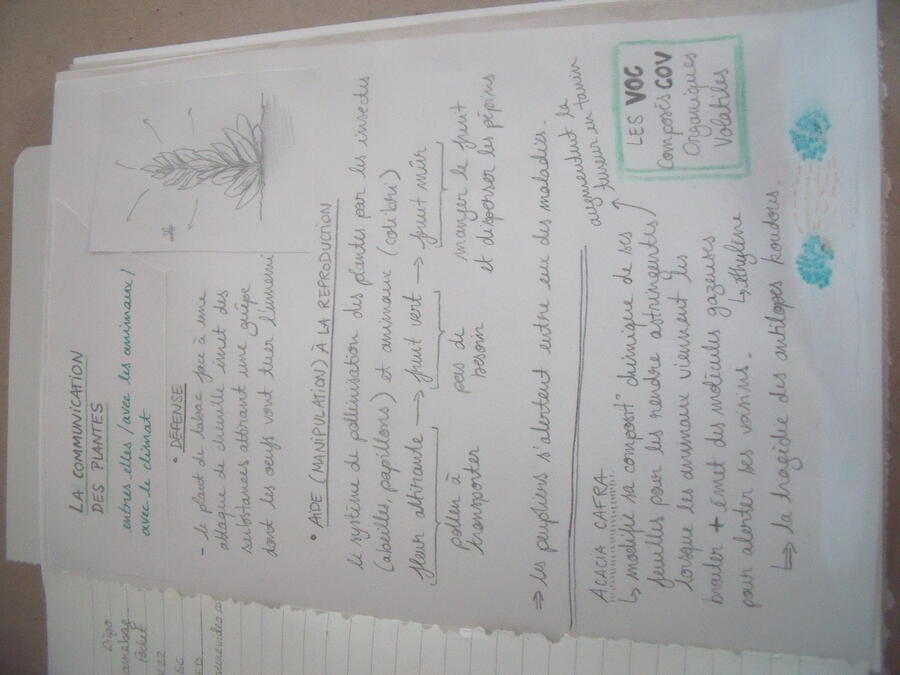 LA COMMUNICATION
DES PLANTES
entres elles / avec les animaux /
avec le climat
• DÉFENSE
- le plant de tabac face à une
attaque de chenille émet des
substances attirant une guêpe
dont les oeufs vont tuer l'ennemi
• AIDE (MANIPULATION) À LA REPRODUCTION
le système de pollenisation des plantes par les insectes
(abeilles, papillons) et animaux (colibri)
fleur attirante → fruit vert → fruit mûr
pollen à
transporter
pas de
besoin
manger le fruit
et disperser les pépins
⇒ les peupliers s'alertent entre eux des maladies.
ACACIA CAFRA
↳ modifie sa composit° chimique de ses
feuilles pour les rendre astringentes
lorsque les animaux viennent les
brouter + émet des molécules gazeuses
pour alerter ses voisins.
↳ éthylène
↳ la tragédie des antilopes koudous.
augmentent la
teneur en tanin
LES VOC
Composés COV
Organiques
Volatiles